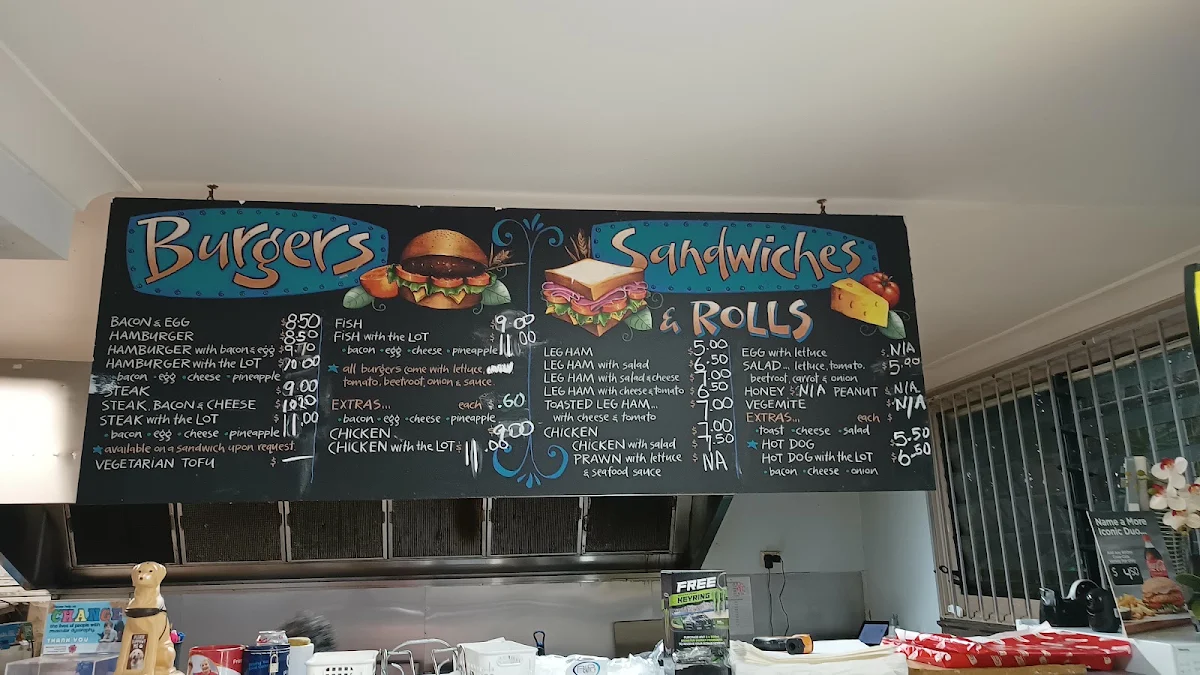 Burgers
BACON & EGG $8.50
HAMBURGER $8.50
HAMBURGER with bacon & egg $9.70
HAMBURGER with the LOT $
• bacon • egg • cheese • pineapple
STEAK $9.00
STEAK, BACON & CHEESE $
STEAK with the LOT $11.00
• bacon • egg • cheese • pineapple
★ available on a sandwich upon request
VEGETARIAN TOFU $ —
FISH $9.00
FISH with the LOT $11.00
• bacon • egg • cheese • pineapple
★ all burgers come with lettuce,
tomato, beetroot, onion & sauce.
EXTRAS... each $.60
• bacon • egg • cheese • pineapple
CHICKEN $9.00
CHICKEN with the LOT $11.00
Sandwiches
& ROLLS
LEG HAM $5.00
LEG HAM with salad $6.50
LEG HAM with salad & cheese $
LEG HAM with cheese & tomato $6.50
TOASTED LEG HAM... $7.00
with cheese & tomato
CHICKEN $7.00
CHICKEN with salad $7.50
PRAWN with lettuce $NA
& seafood sauce
EGG with lettuce $N/A
SALAD... lettuce, tomato, $5.90
beetroot, carrot & onion
HONEY $N/A PEANUT $N/A
VEGEMITE $N/A
EXTRAS... each $
• toast • cheese • salad
★ HOT DOG $5.50
HOT DOG with the LOT $6.50
• bacon • cheese • onion
Name a More
Iconic Duo...
$ 4.50
CHANGE
the lives of people with
muscular dystrophy
THANK YOU
FREE
KEYRING